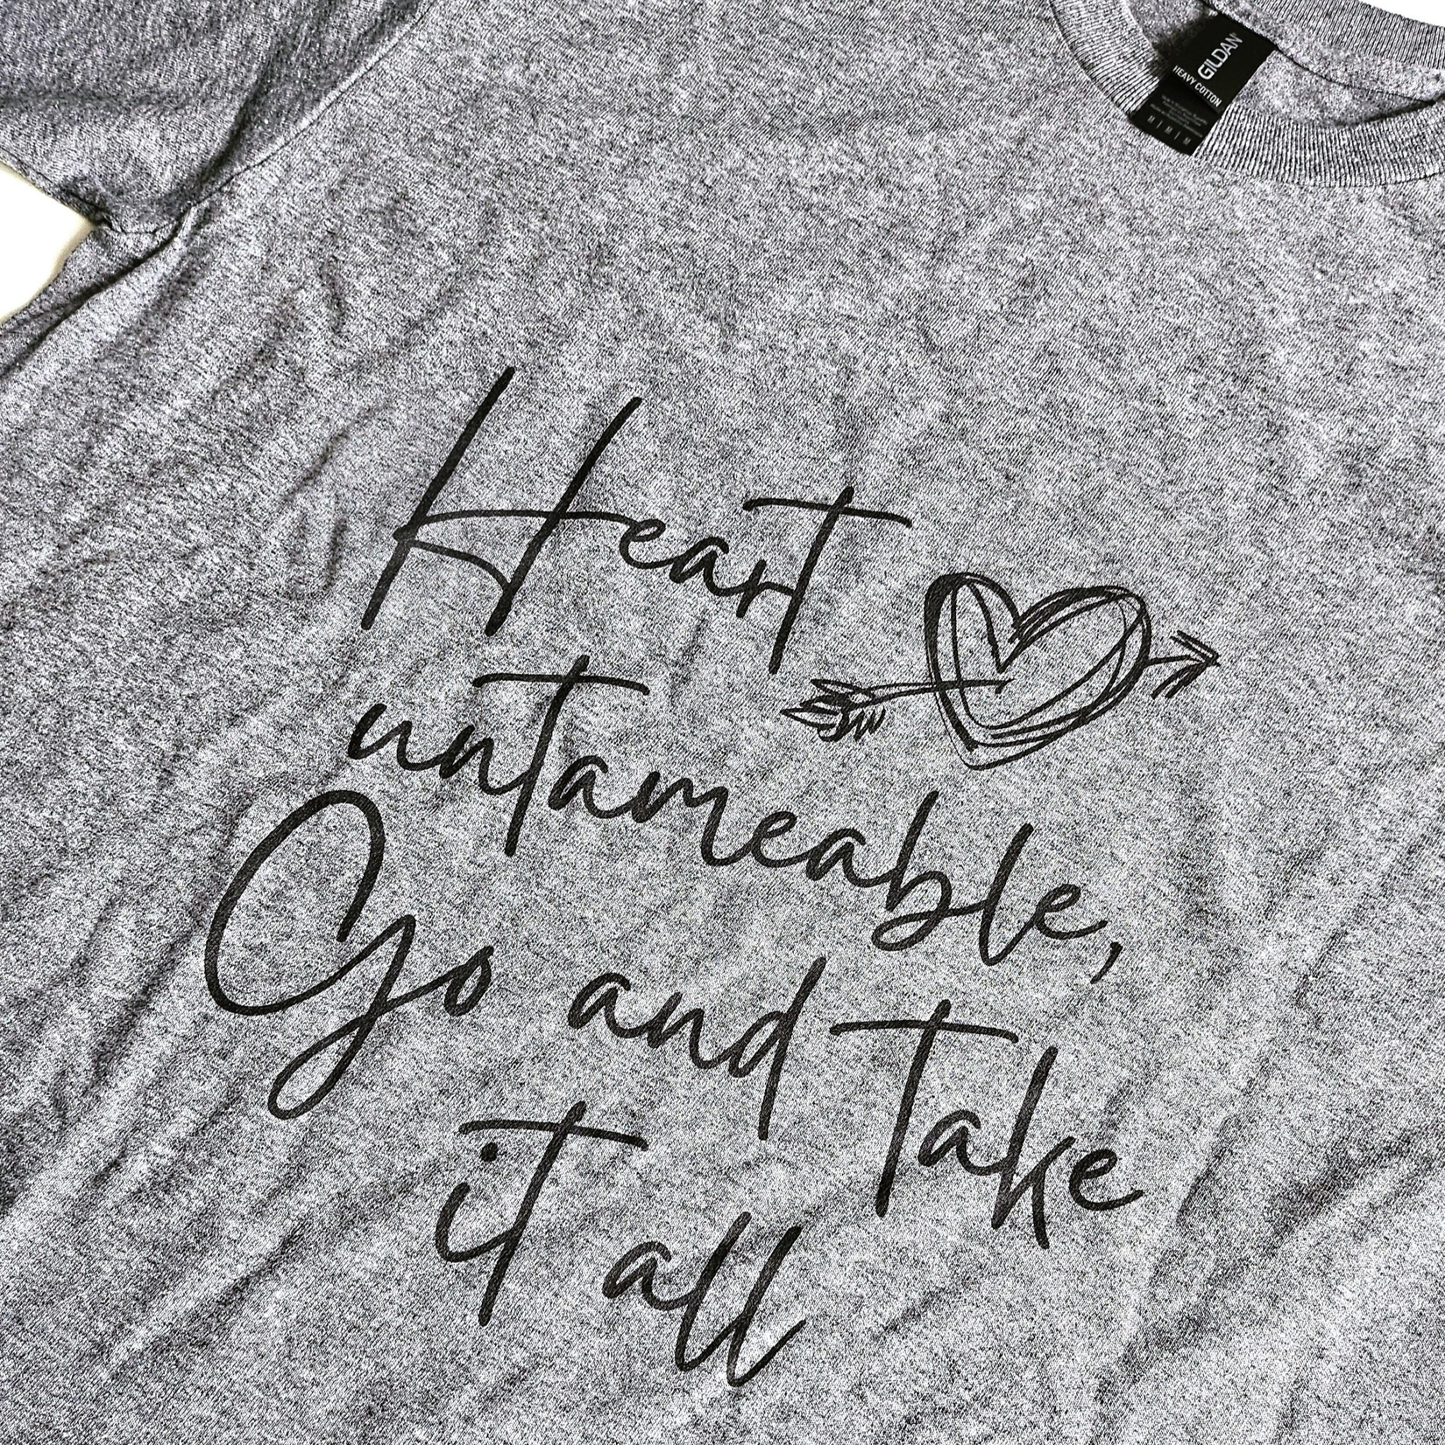 GILDAN
HEAVY COTTON
M | M | M
Heart
untameable,
Go and Take
it all